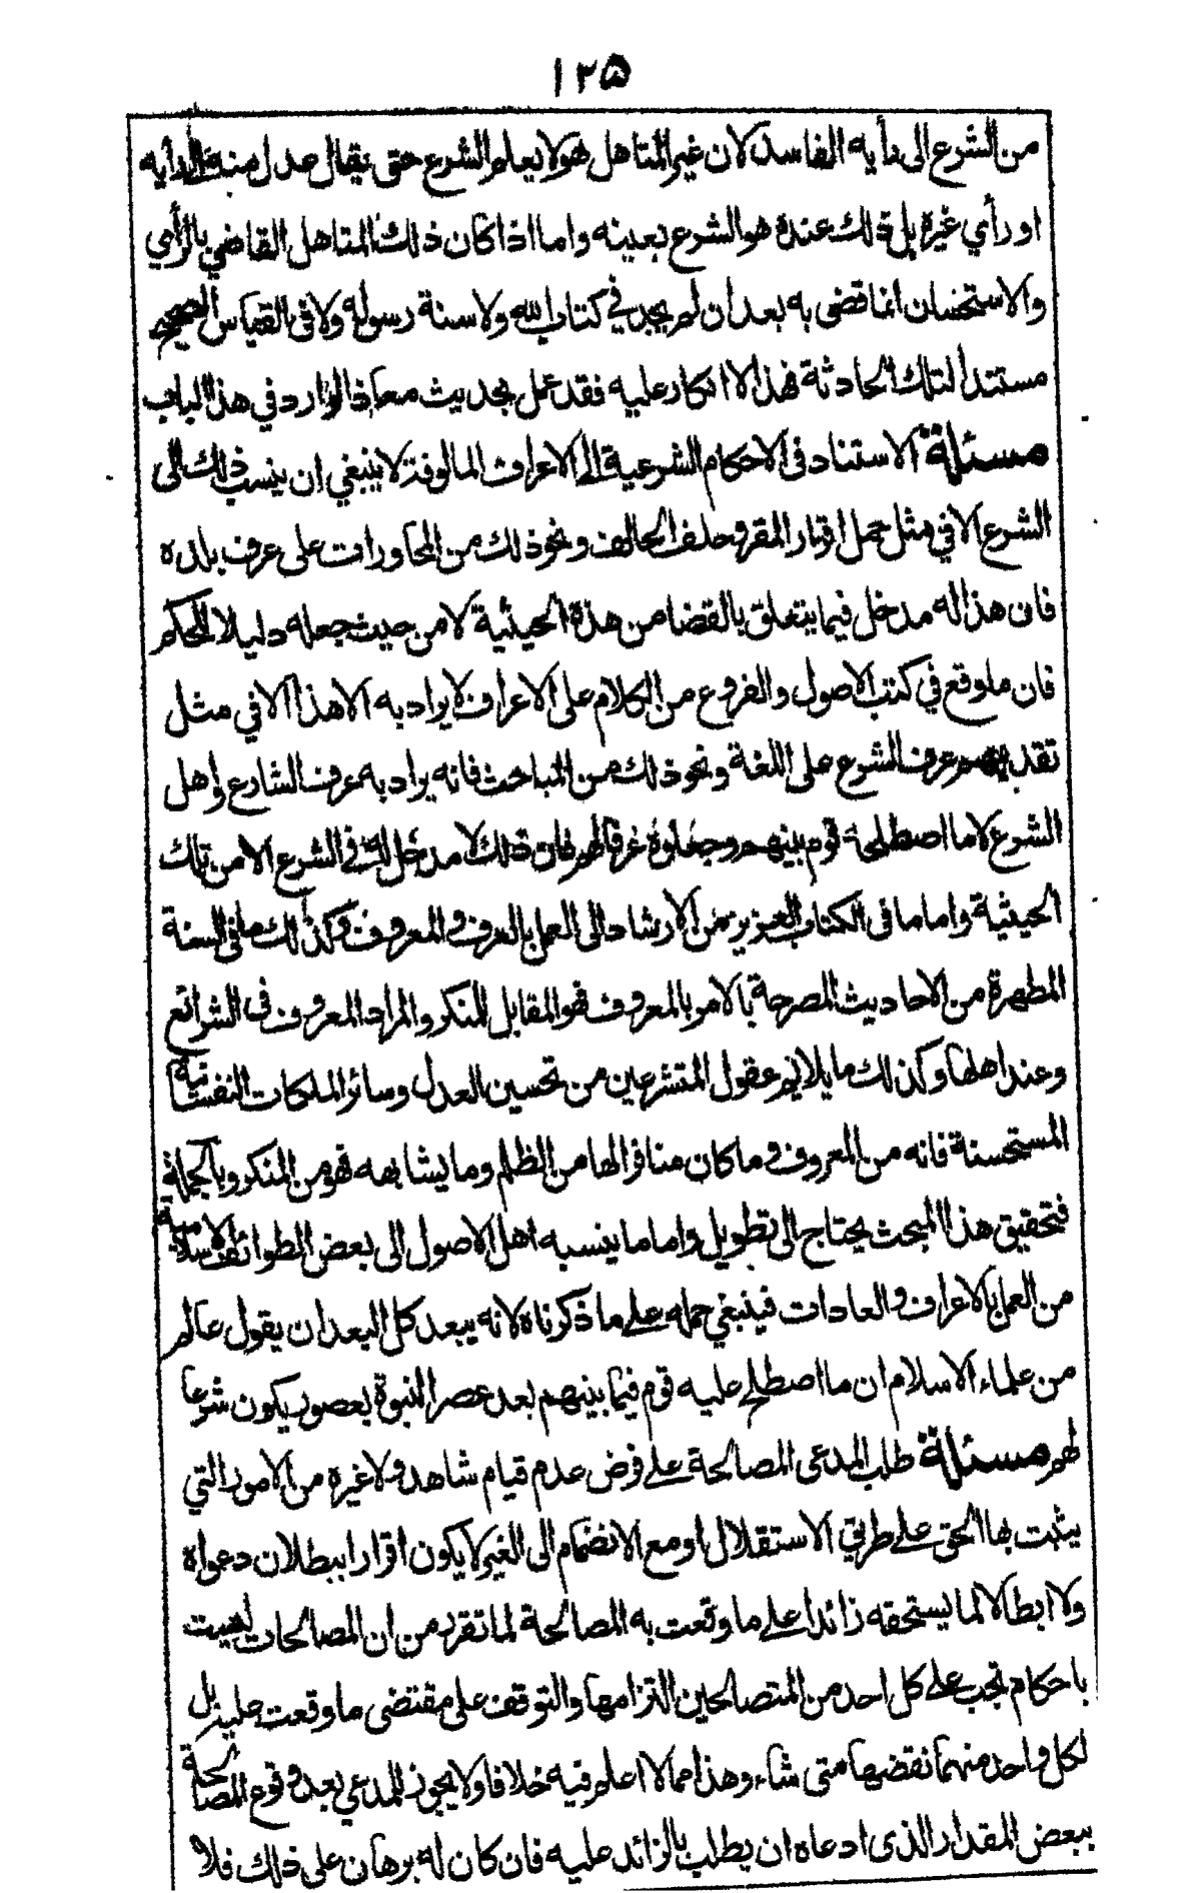 ١٢٥
من الشرع الى رأيه الفاسد لان غير المتاهل هو لا يعلم الشرع حتى يقال عدل منه الى رأيه
او رأي غيره بل ذلك عنده هو الشرع بعينه واما اذا كان ذلك المتاهل القاضي بالرأي
والاستحسان انما قضى به بعد ان لم يجد في كتاب الله ولا سنة رسوله ولا في القياس الصحيح
مستندا لتلك الحادثة فهذا لا انكار عليه فقد عمل بحديث معاذ الوارد في هذا الباب
مسئلة الاستناد في الاحكام الشرعية الى الاعراف المالوفة لا ينبغي ان ينسب ذلك الى
الشرع الا في مثل حمل اقرار المقر وحلف الحالف ونحو ذلك من المحاورات على عرف بلده
فان هذا له مدخل فيما يتعلق بالقضا من هذه الحيثية لا من حيث جعله دليلا للحكم
فان ما وقع في كتب الاصول والفروع من الكلام على الاعراف لا يراد به الا هذا الا في مثل
تقديم عرف الشرع على اللغة ونحو ذلك من المباحث فانه يراد به عرف الشارع واهل
الشرع لا ما اصطلحه قوم بينهم وجعلوه عرفا لهم فان ذلك لا مدخل له في الشرع الا من تلك
الحيثية واما ما في الكتاب العزيز من الارشاد الى العمل بالعرف والمعروف وكذلك ما في السنة
المطهرة من الاحاديث المصرحة بالامر بالمعروف فهو المقابل للمنكر والمراد المعروف في الشرائع
وعند اهلها وكذلك ما يلايم عقول المتشرعين من تحسين العدل وسائر الملكات النفسانية
المستحسنة فانه من المعروف وما كان منافرا لها من الظلم وما يشابهه فهو من المنكر وبالجملة
فتحقيق هذا المبحث يحتاج الى تطويل واما ما ينسبه اهل الاصول الى بعض الطوائف الاسلامية
من العمل بالاعراف والعادات فينبغي حمله على ما ذكرناه لانه يبعد كل البعد ان يقول عالم
من علماء الاسلام ان ما اصطلح عليه قوم فيما بينهم بعد عصر النبوة بعصور يكون شرعا
لهم مسئلة طلب المدعى المصالحة على فرض عدم قيام شاهد ولا غيره من الامور التي
يثبت بها الحق على طريق الاستقلال او مع الانضمام الى الغير لا يكون اقرارا ببطلان دعواه
ولا ابطالا لما يستحقه زائدا على ما وقعت به المصالحة لما تقرر من ان المصالحات ليست
باحكام تجب على كل احد من المتصالحين التزامها والتوقف على مقتضى ما وقعت عليه بل
لكل واحد منهما نقضها متى شاء وهذا مما لا اعلم فيه خلافا ولا يجوز للمدعي بعد وقوع المصالحة
ببعض المقدار الذى ادعاه ان يطلب بالزائد عليه فان كان له برهان على ذلك فلا